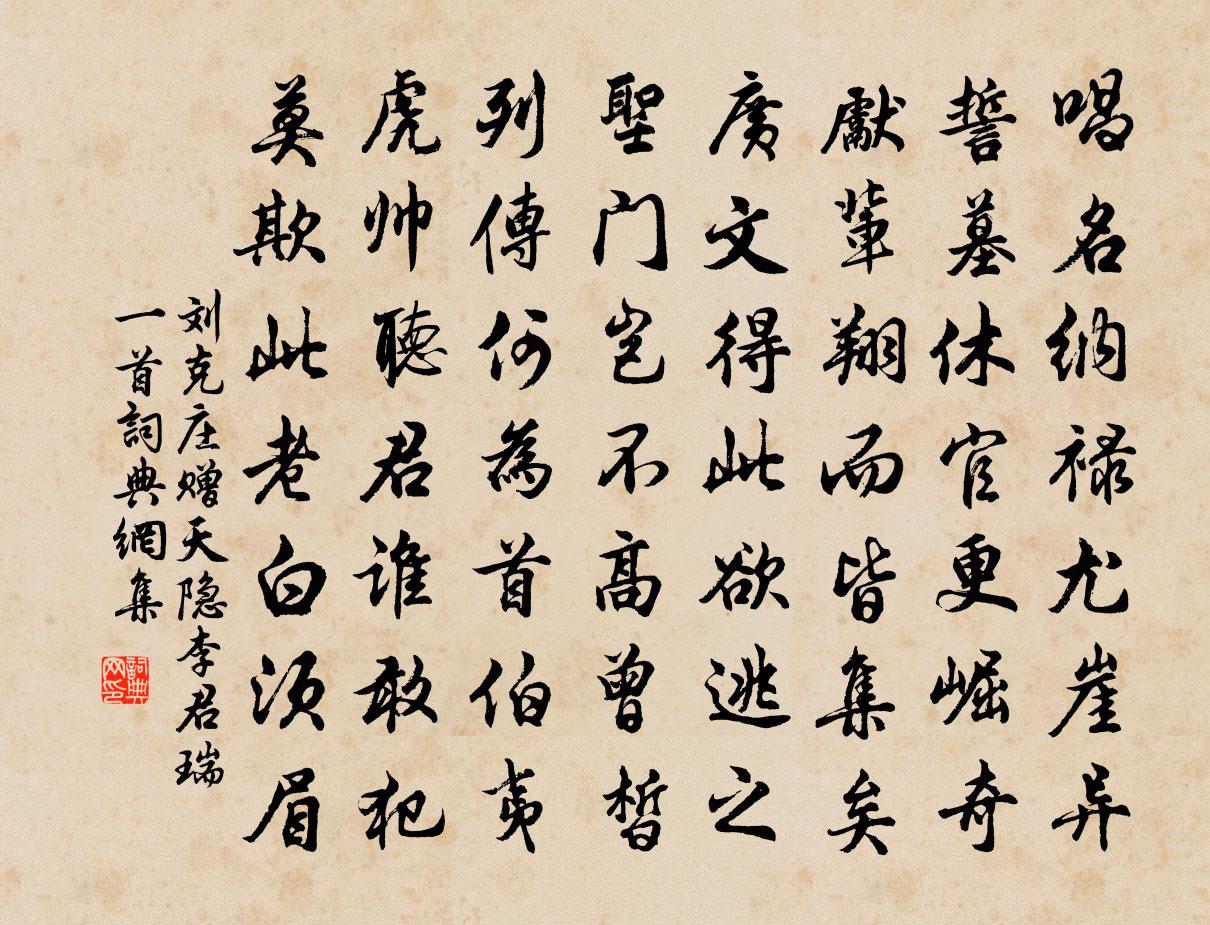 唱名纳禄尤崖异
誓墓休官更崛奇
獻輩翔而皆集矣
廣文得此欲逃之
聖门岂不高曾皙
列傳何為首伯夷
虎帅聽君谁敢犯
莫欺此老白须眉
刘克庄赠天隐李君瑞
一首詞典網集
詞典
网印